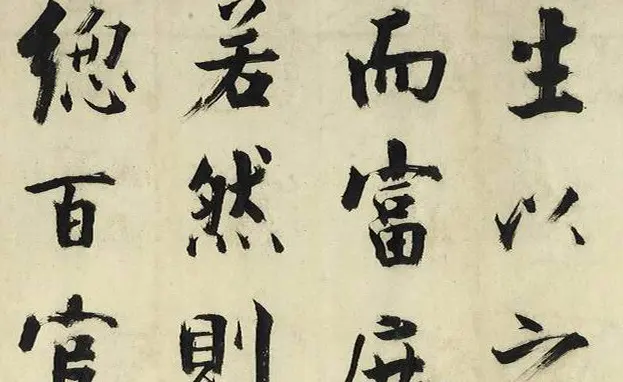 生以之
而富庶
若然則
緫百官